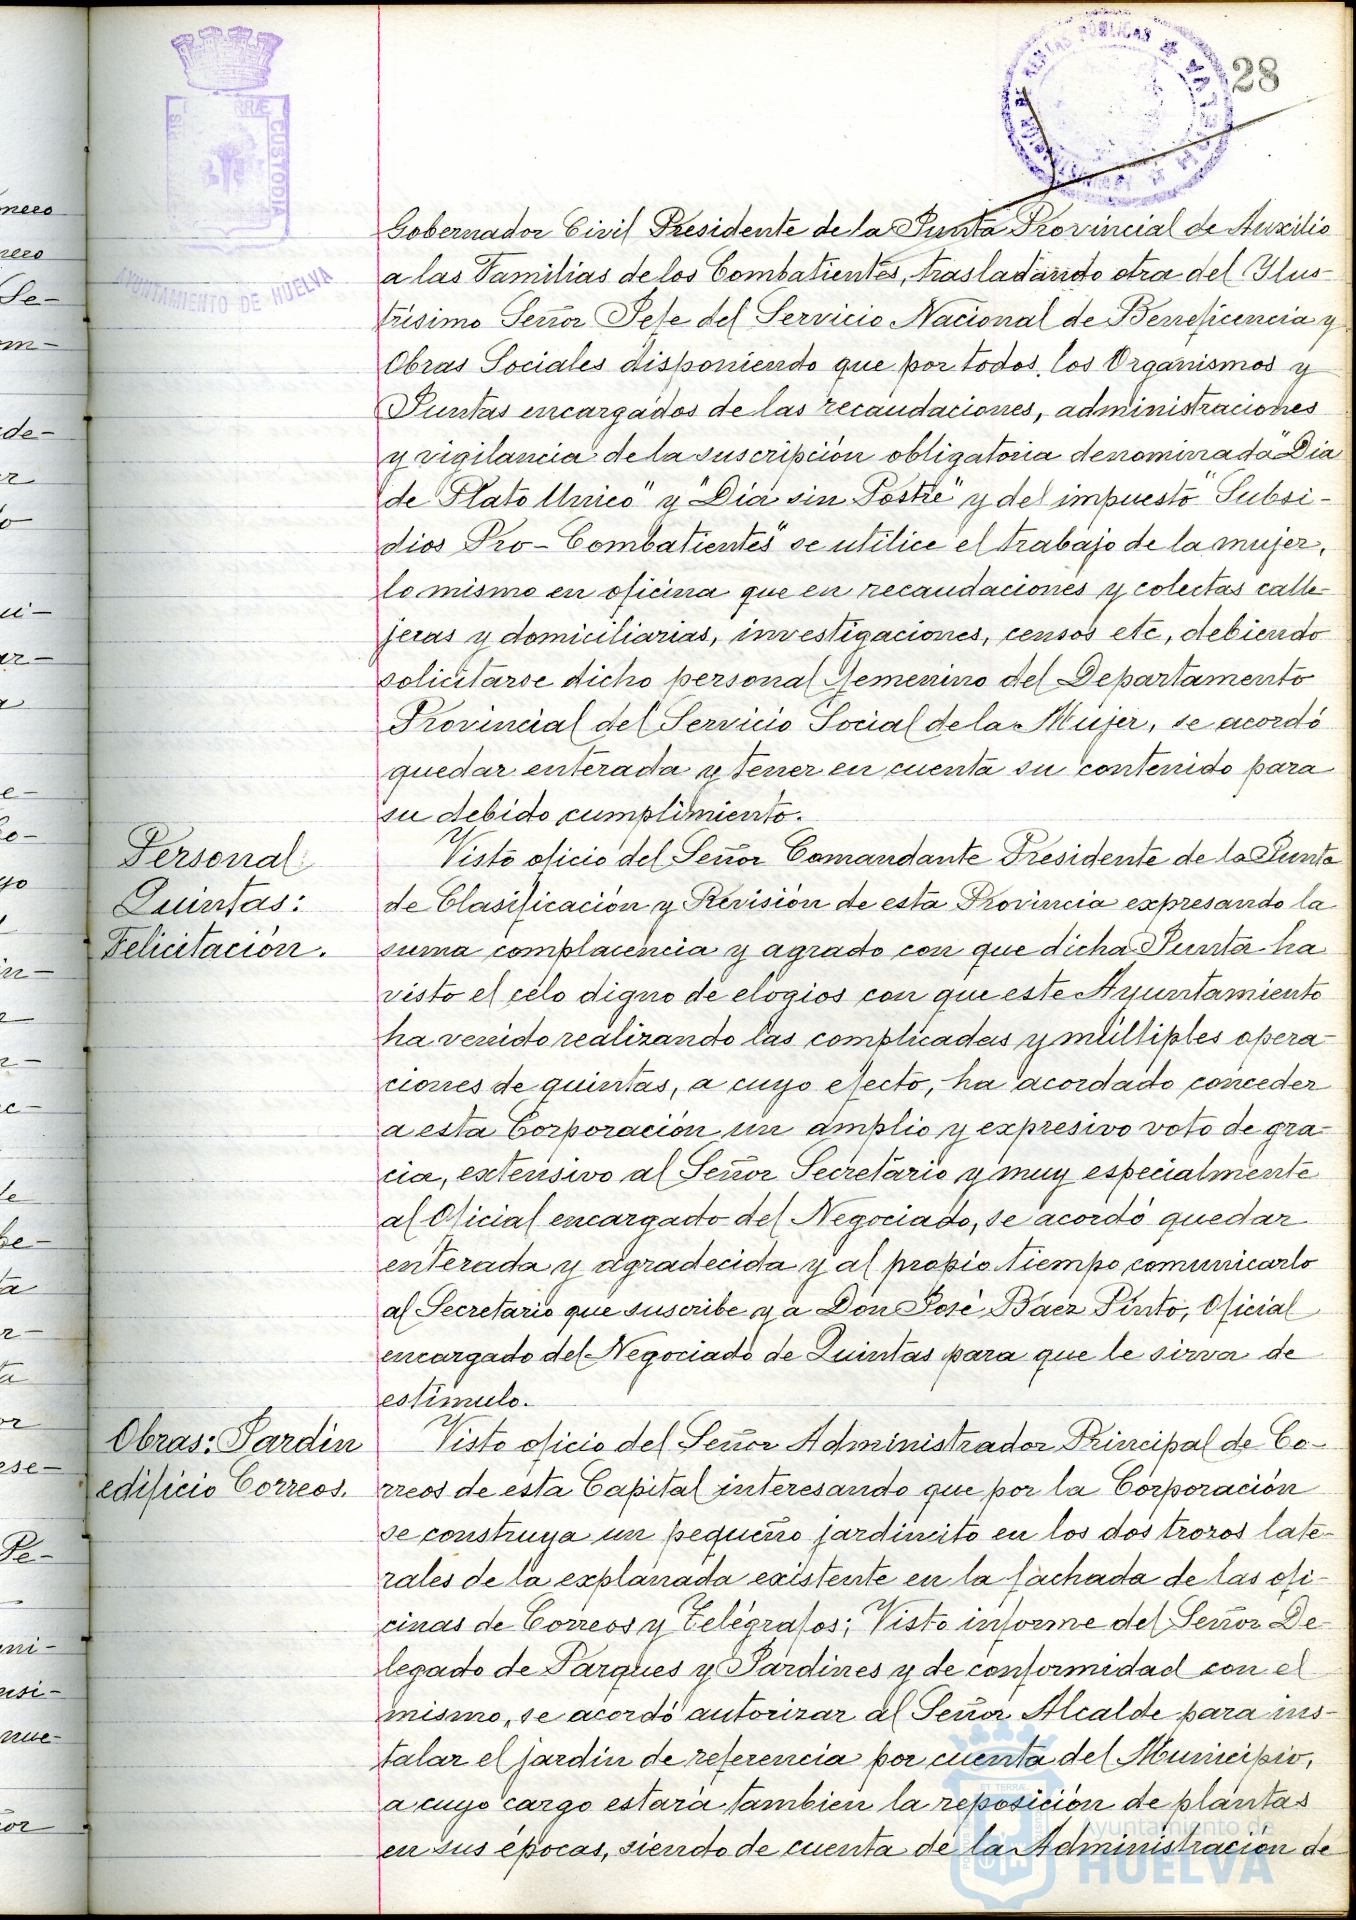 28
AYUNTAMIENTO DE HUELVA
CUSTODIA
Gobernador Civil Presidente de la Junta Provincial de Auxilio
a las Familias de los Combatientes, trasladando otra del Ilus-
trísimo Señor Jefe del Servicio Nacional de Beneficencia y
Obras Sociales disponiendo que por todos los Organismos y
Juntas encargados de las recaudaciones, administraciones
y vigilancia de la suscripción obligatoria denominada "Dia
de Plato Unico" y "Día sin Postre" y del impuesto "Subsi-
dios Pro-Combatientes" se utilice el trabajo de la mujer,
lo mismo en oficina que en recaudaciones y colectas calle-
jeras y domiciliarias, investigaciones, censos etc, debiendo
solicitarse dicho personal femenino del Departamento
Provincial del Servicio Social de la Mujer, se acordó
quedar enterada y tener en cuenta su contenido para
su debido cumplimiento.
Personal
Quintas:
Felicitación.
Visto oficio del Señor Comandante Presidente de la Junta
de Clasificación y Revisión de esta Provincia expresando la
suma complacencia y agrado con que dicha Junta ha
visto el celo digno de elogios con que este Ayuntamiento
ha venido realizando las complicadas y múltiples opera-
ciones de quintas, a cuyo efecto, ha acordado conceder
a esta Corporación un amplio y expresivo voto de gra-
cia, extensivo al Señor Secretario y muy especialmente
al Oficial encargado del Negociado, se acordó quedar
enterada y agradecida y al propio tiempo comunicarlo
al Secretario que suscribe y a Don José Báez Pinto, Oficial
encargado del Negociado de Quintas para que le sirva de
estímulo.
Obras: Jardín
edificio Correos.
Visto oficio del Señor Administrador Principal de Co-
rreos de esta Capital interesando que por la Corporación
se construya un pequeño jardincito en los dos trozos late-
rales de la explanada existente en la fachada de las ofi-
cinas de Correos y Telégrafos; Visto informe del Señor De-
legado de Parques y Jardines y de conformidad con el
mismo, se acordó autorizar al Señor Alcalde para ins-
talar el jardín de referencia por cuenta del Municipio,
a cuyo cargo estará tambien la reposición de plantas
en sus épocas, siendo de cuenta de la Administración de
Ayuntamiento de
HUELVA